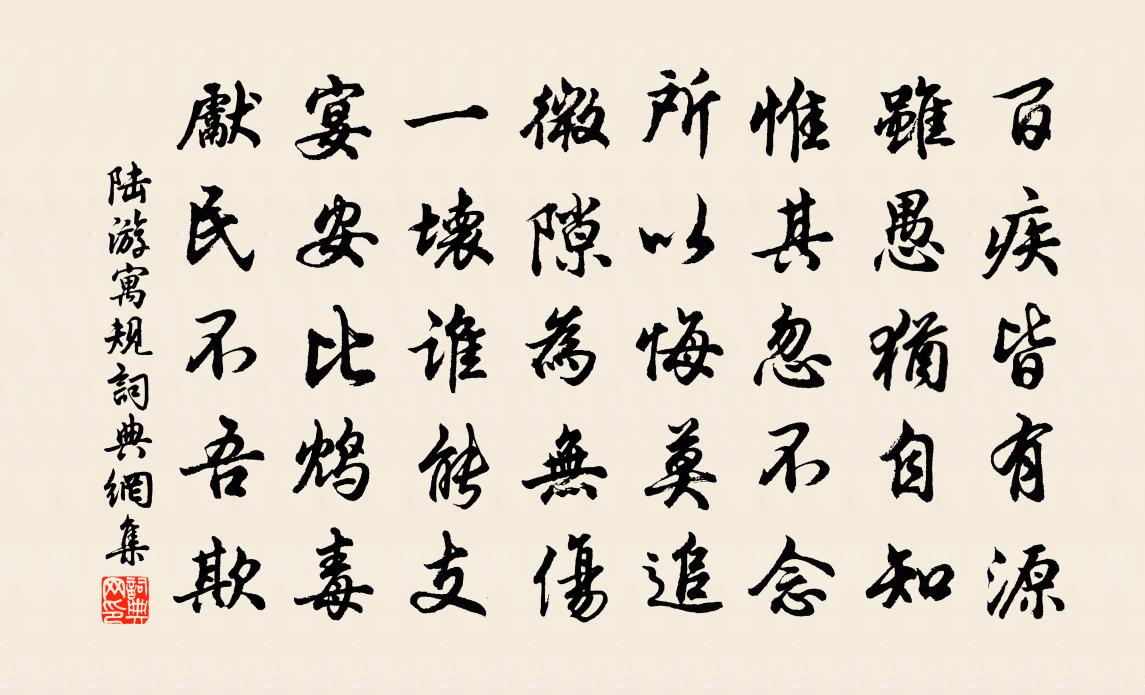 百疾皆有源
雖愚猶自知
惟其忽不念
所以悔莫追
微隙為無傷
一壞誰能支
宴安比鴆毒
獻民不吾欺
陆游寓規詞典網集
詞典网印